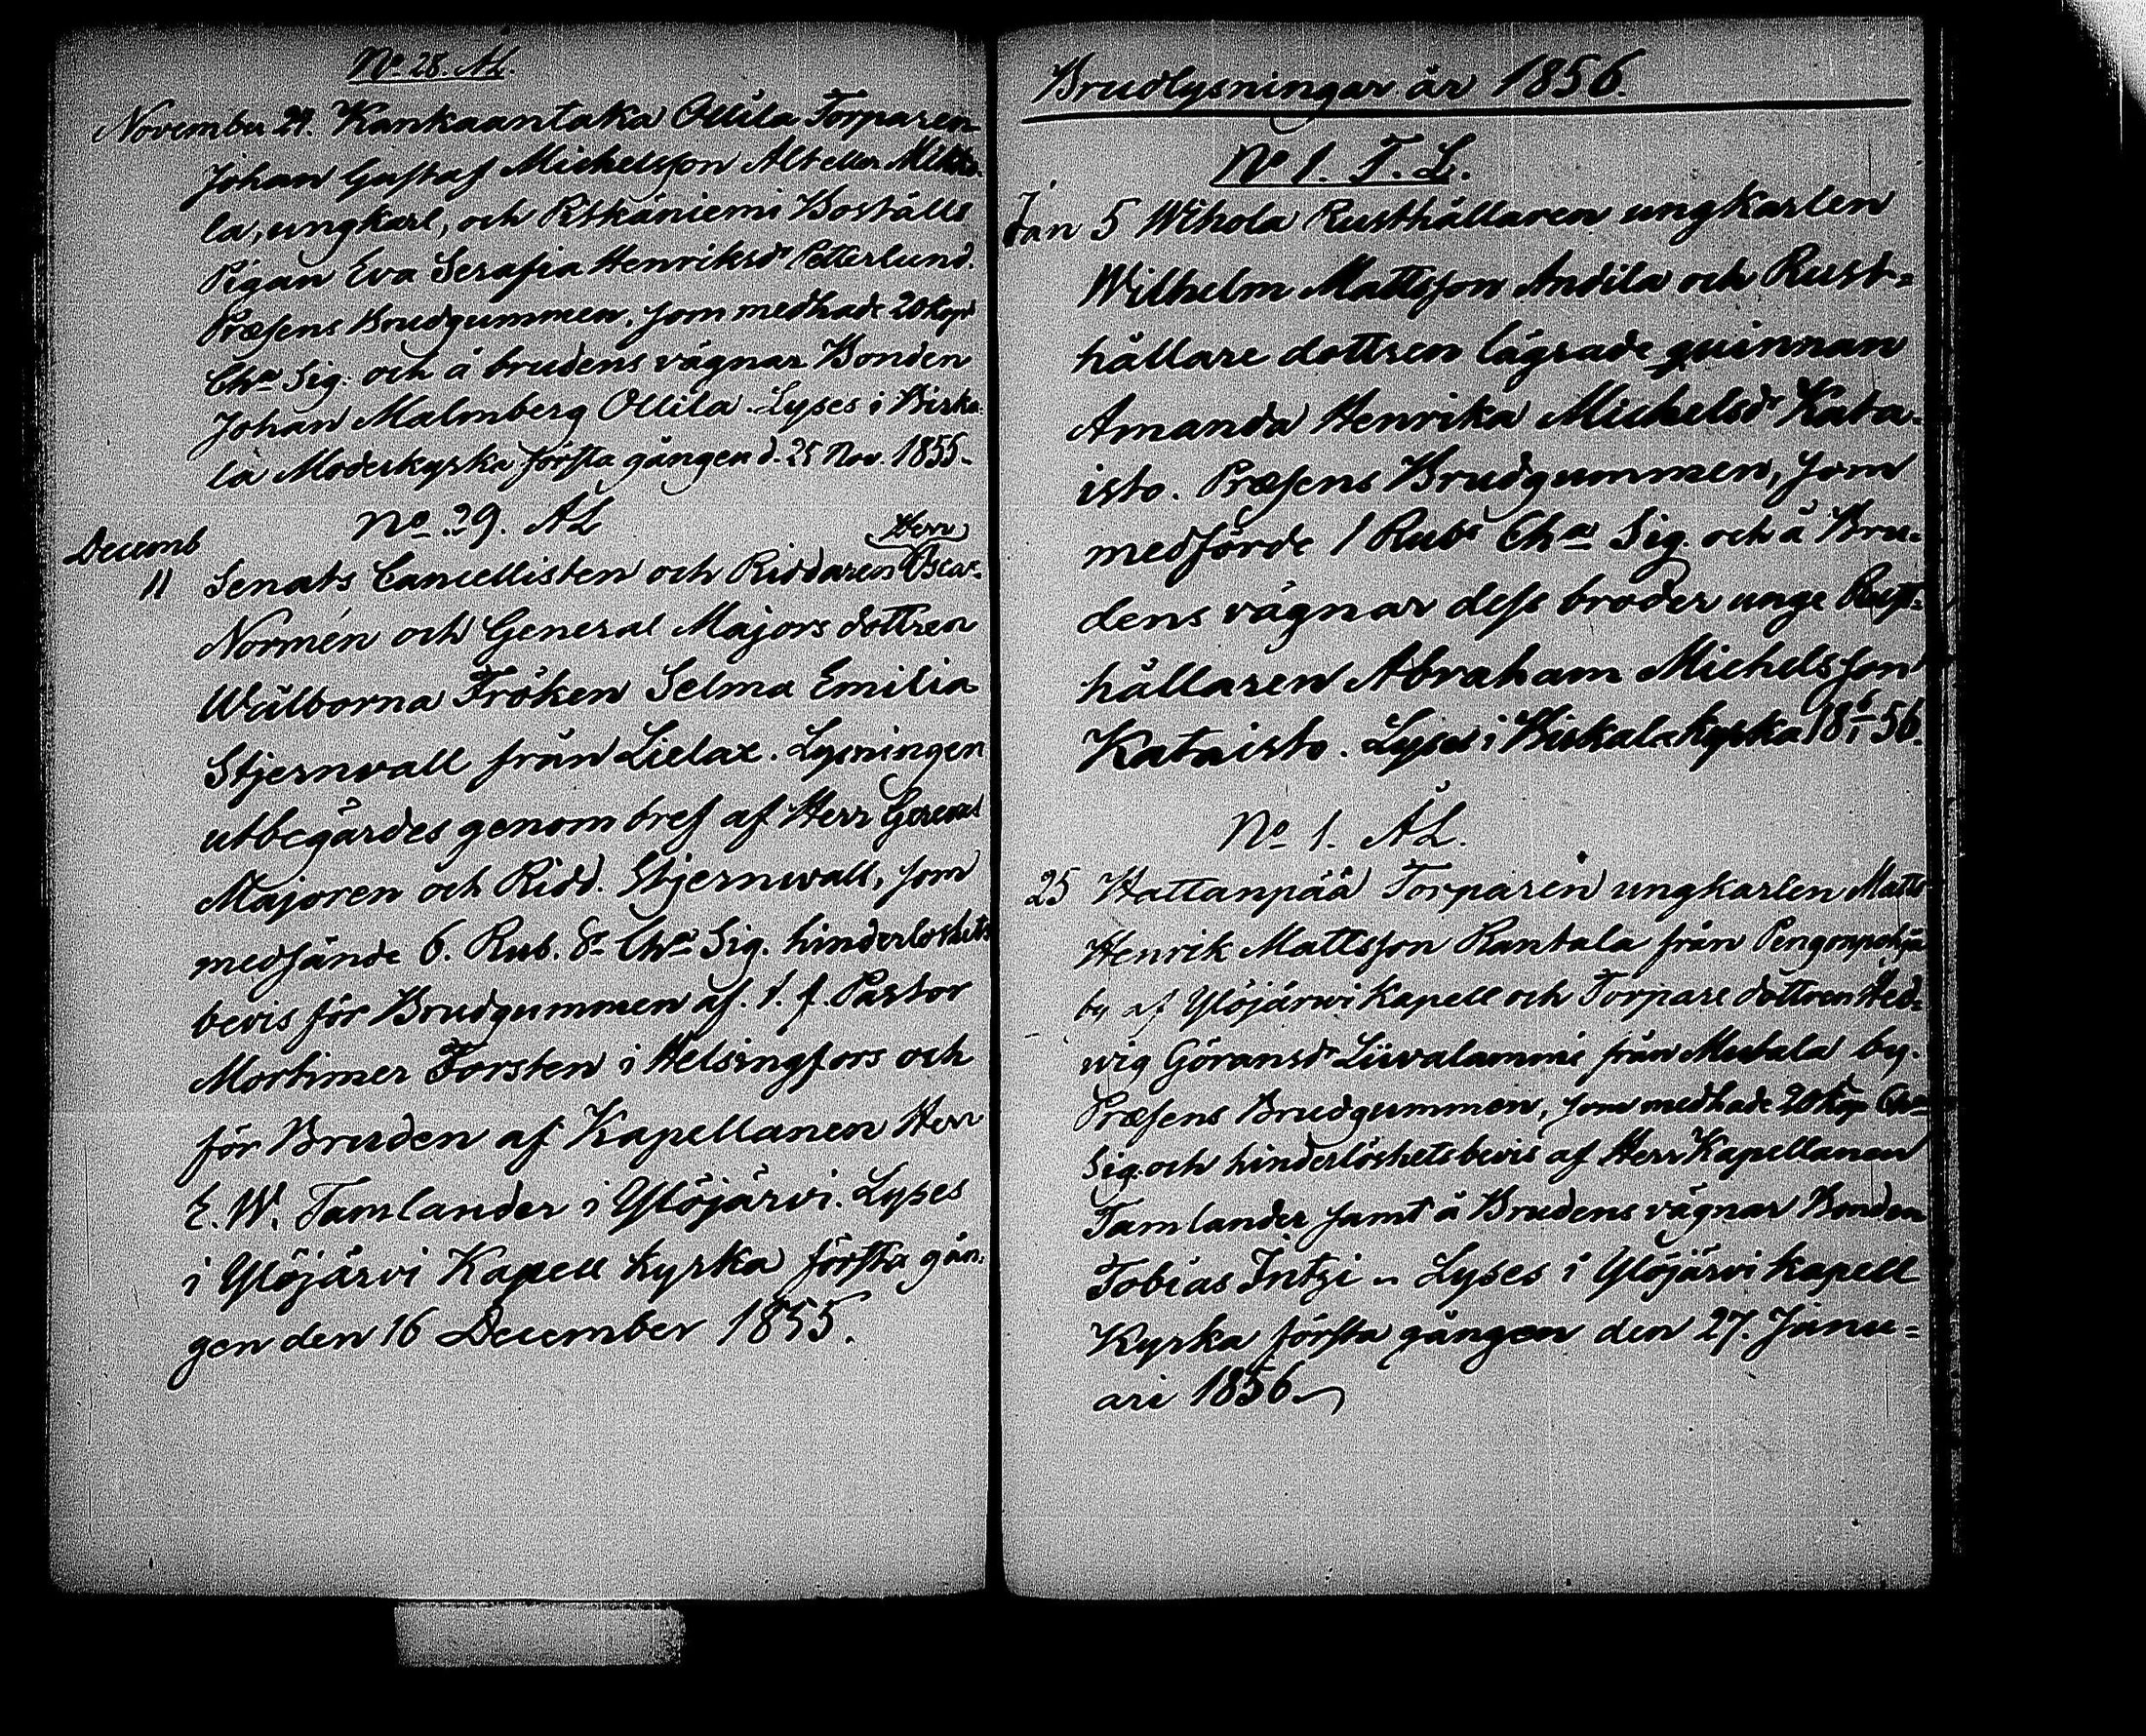 No 28. ÄL.
November 24. Kankaantaka Ollila Torparen
Johan Gustaf Michelsson Alt eller Mikko-
la, ungkarl, och Pitkäniemi Boställs
Pigan Eva Serafia Henriksdr Petterlund.
Præsens Brudgummen, som medhade 20 kop
Cha Sig. och å brudens vägnar Bonden
Johan Malmberg Ollila. Lyses i Birka-
la Moderkyrka första gången d. 25 Nov. 1855.
No 29. ÄL
Decemb
11 Senats Cancellisten och Riddaren Herr Oscar
Normén och General Majors dottren
Wälborna Fröken Selma Emilia
Stjernvall från Lielax. Lysningen
utbegärdes genom bref af Herr General
Majoren och Ridd. Stjernwall, som
medsände 6. Rub. Sr Cha Sig. hinderlöshets
bevis för Brudgummen af. t. f. Pastor
Mortimer Forsten i Helsingfors och
för Bruden af Kapellanen Herr
E. W. Tamlander i Ylöjärvi. Lyses
i Ylöjärvi Kapell kyrka första gån-
gen den 16 December 1855.
Brudlysningar år 1856.
No 1. T. L.
Jan 5 Wihola Rusthållaren ungkarlen
Wilhelm Mattsson Andila och Rust=
hållare dottren lägrade quinnan
Amanda Henrika Michelsdr Kata-
isto. Præsens Brudgummen, som
medförde 1 Rubs Cha Sig. och å Bru-
dens vägnar dess broder unge Rust-
hållaren Abraham Michelsson
Kataisto. Lyses i Birkala kyrka 18 6/1 56.
No 1. ÄL.
25 Hattanpää Torparen ungkarlen Matts
Henrik Mattsson Rantala från Pengonpohja
by af Ylöjärwi Kapell och Torpare dottren Hed-
wig Göransdr Liuvalammi från Mutala by.
Præsens Brudgummen, som medhade 20 kop Cha
Sig. och hinderlöshetsbevis af Herr Kapellanen
Tamlander samt å Brudens vägnar Bonden
Tobias Intzi. Lyses i Ylöjärvi kapell
Kyrka första gången den 27. Janu=
ari 1856.